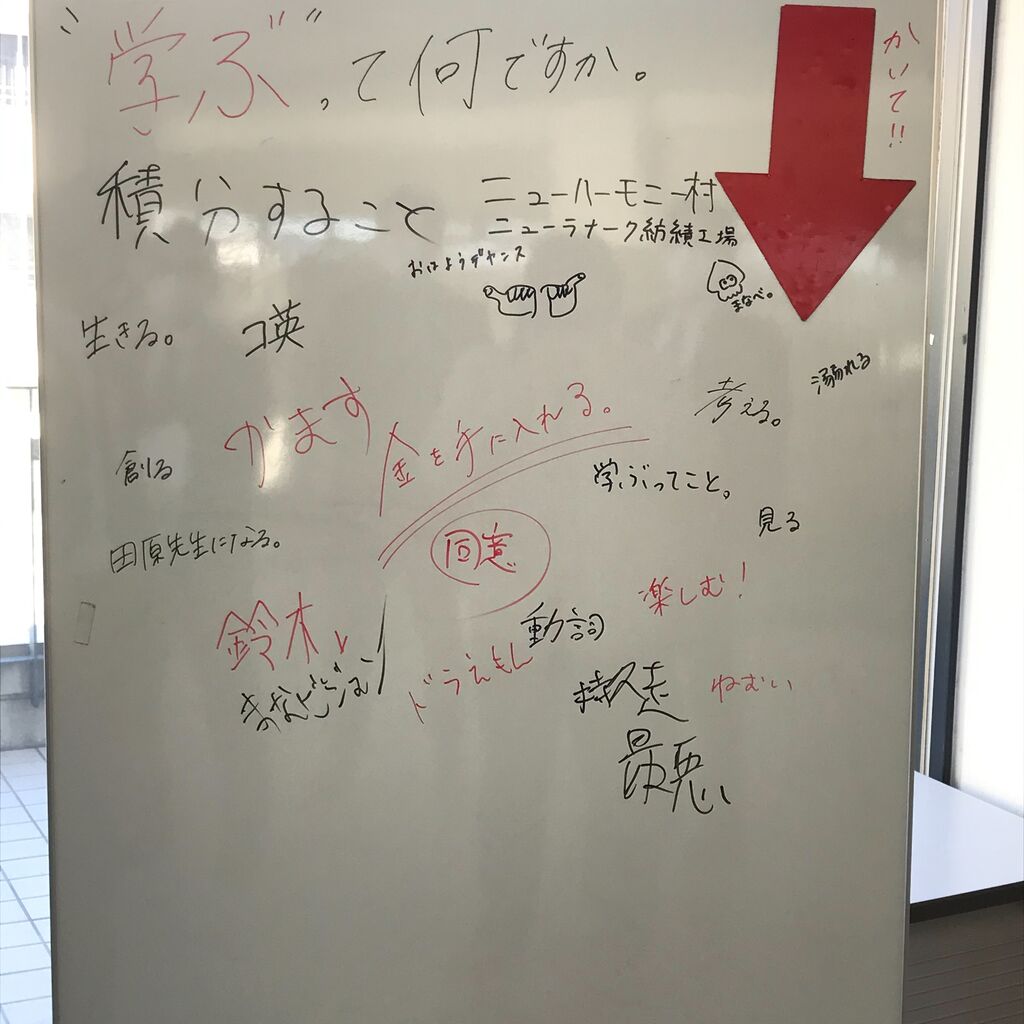 “学ぶ”って何ですか。
かいて!!
積分すること
ニューハーモニー村
ニューラナーク紡績工場
おはようダヤンス
まなべ。
生きる。
コ英
溺れる
考える。
かます
金を手に入れる。
創る
学ぶってこと。
見る
田原先生になる。
同意
楽しむ!
鈴木
動詞
ドラえもん
まなビジョン
持久走
ねむい
最悪